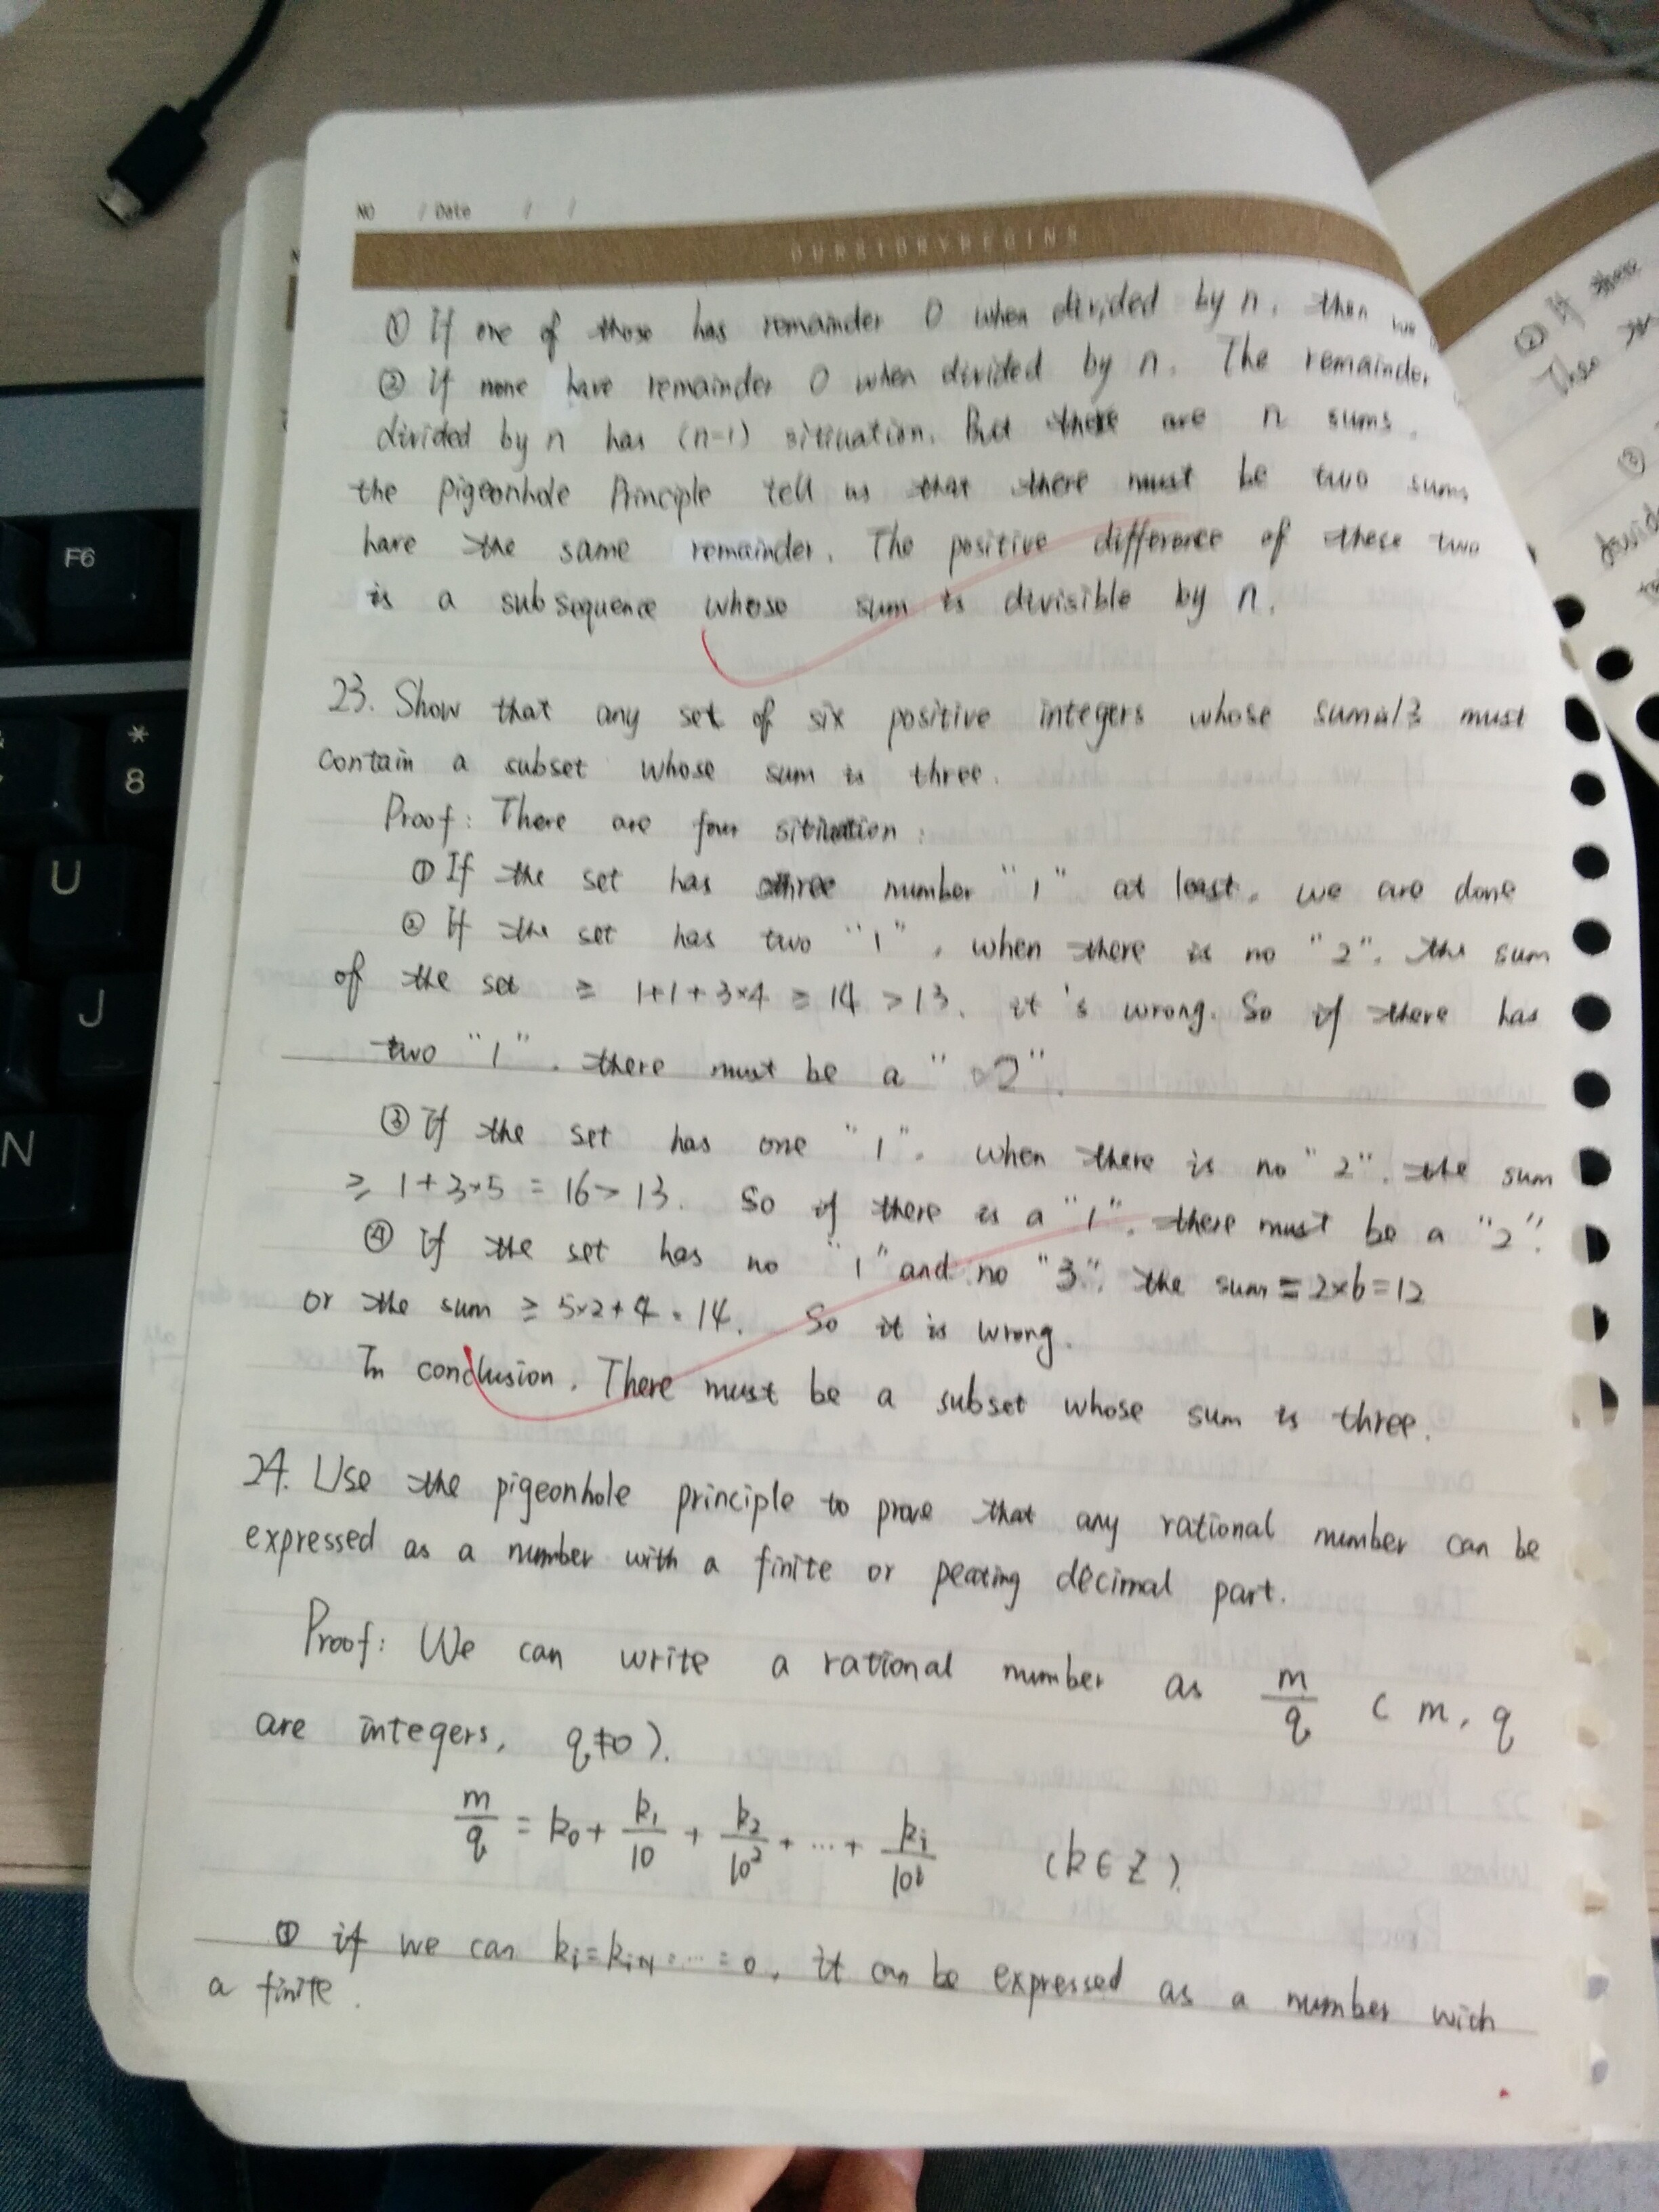 NO / Date / /
OURSTORYBEGINS
① If one of those has remainder 0 when divided by n, then we
② If none have remainder 0 when divided by n. The remainder
divided by n has (n-1) sitiuation. But there are n sums.
the pigeonhole Principle tell us that there must be two sums
have the same remainder. The positive difference of these two
is a subsequence whose sum is divisible by n.
23. Show that any set of six positive integers whose sum 13 must
contain a subset whose sum is three.
Proof: There are four sitiuation:
① If the set has three number "1" at least, we are done
② If the set has two "1", when there is no "2". the sum
of the set ≥ 1+1+3×4 ≥ 14 > 13. it's wrong. So if there has
two "1". there must be a "2".
③ If the set has one "1". when there is no "2". the sum
≥ 1+3×5 = 16 > 13. So if there is a "1". there must be a "2".
④ If the set has no "1" and no "3". the sum = 2×6=12
or the sum ≥ 5×2+4 = 14. So it is wrong.
In conclusion. There must be a subset whose sum is three.
24. Use the pigeonhole principle to prove that any rational number can be
expressed as a number with a finite or peating decimal part.
Proof: We can write a rational number as m/q ( m, q
are integers, q≠0 ).
m/q = k₀ + k₁/10 + k₂/10² + ... + kᵢ/10ⁱ (k∈Z).
① if we can kᵢ=kᵢ₊₁=...=0, it can be expressed as a number with
a finite.
F6
*
8
U
J
N
② If
Then
③